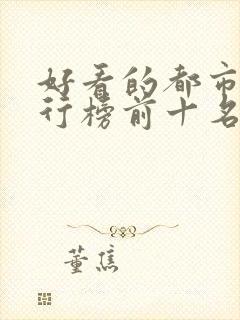 好看的都市
行榜前十名
董焦